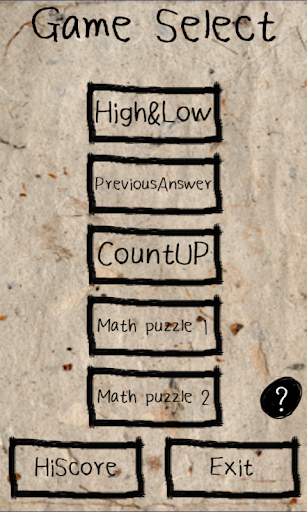 Game Select
High&Low
PreviousAnswer
CountUP
Math puzzle 1
Math puzzle 2
?
HiScore
Exit